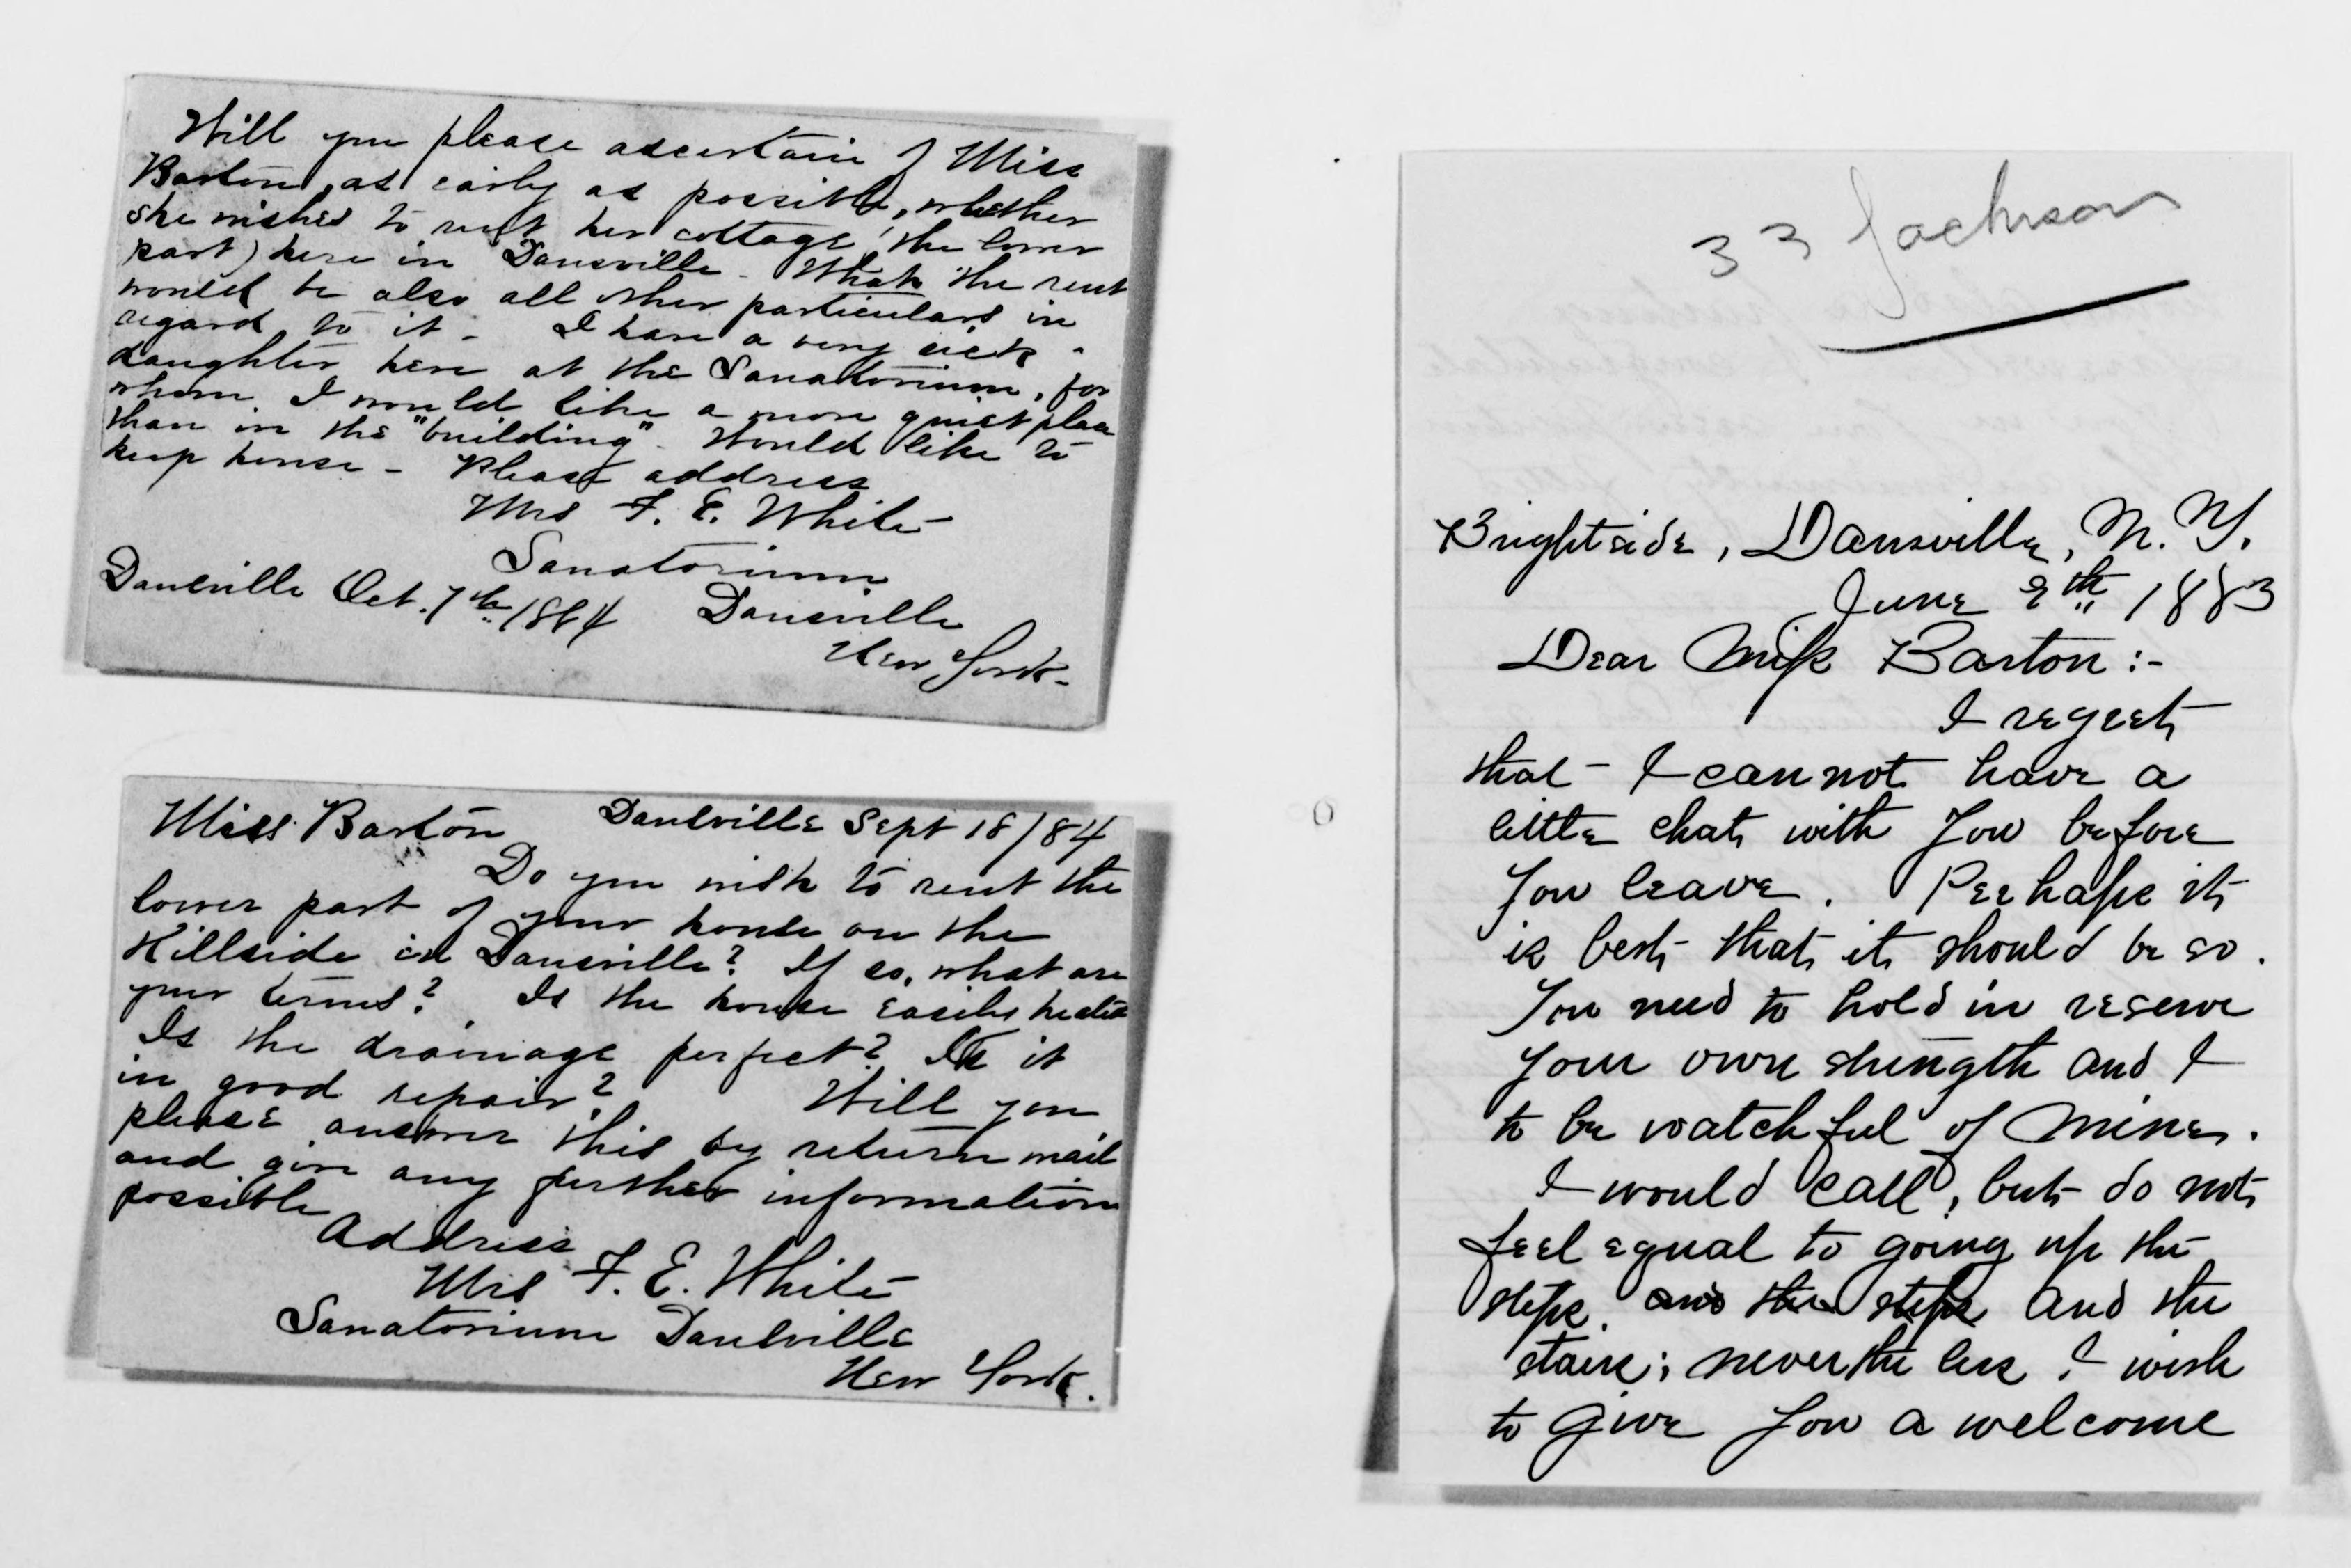 Will you please ascertain of Miss
Barton, as early as possible, whether
she wishes to rent her cottage (the lower
part) here in Dansville - What the rent
would be also all other particulars in
regard to it - I have a very sick -
daughter here at the Sanatorium, for
whom I would like a more quiet place
than in the "building" - Would like to
keep house - Please address
Mrs F. E. White
Sanatorium
Dansville Oct. 7th 1884 Dansville
New York -
Miss Barton Dansville Sept 18/84
Do you wish to rent the
lower part of your house on the
Hillside in Dansville? If so, what are
your terms? Is the house easily heated
Is the drainage perfect? Is it
in good repair? Will you
please answer this by return mail
and give any further information
possible
Address
Mrs F. E. White
Sanatorium Dansville
New York.
33 Jackson
Brightside, Dansville, N. Y.
June 9th 1883
Dear Miss Barton :-
I regret
that I cannot have a
little chat with you before
you leave. Perhaps it
is best that it should be so.
You need to hold in reserve
your own strength and I
to be watchful of mine.
I would call, but do not
feel equal to going up the
steps. and the steps and the
stairs; never the less I wish
to give you a welcome